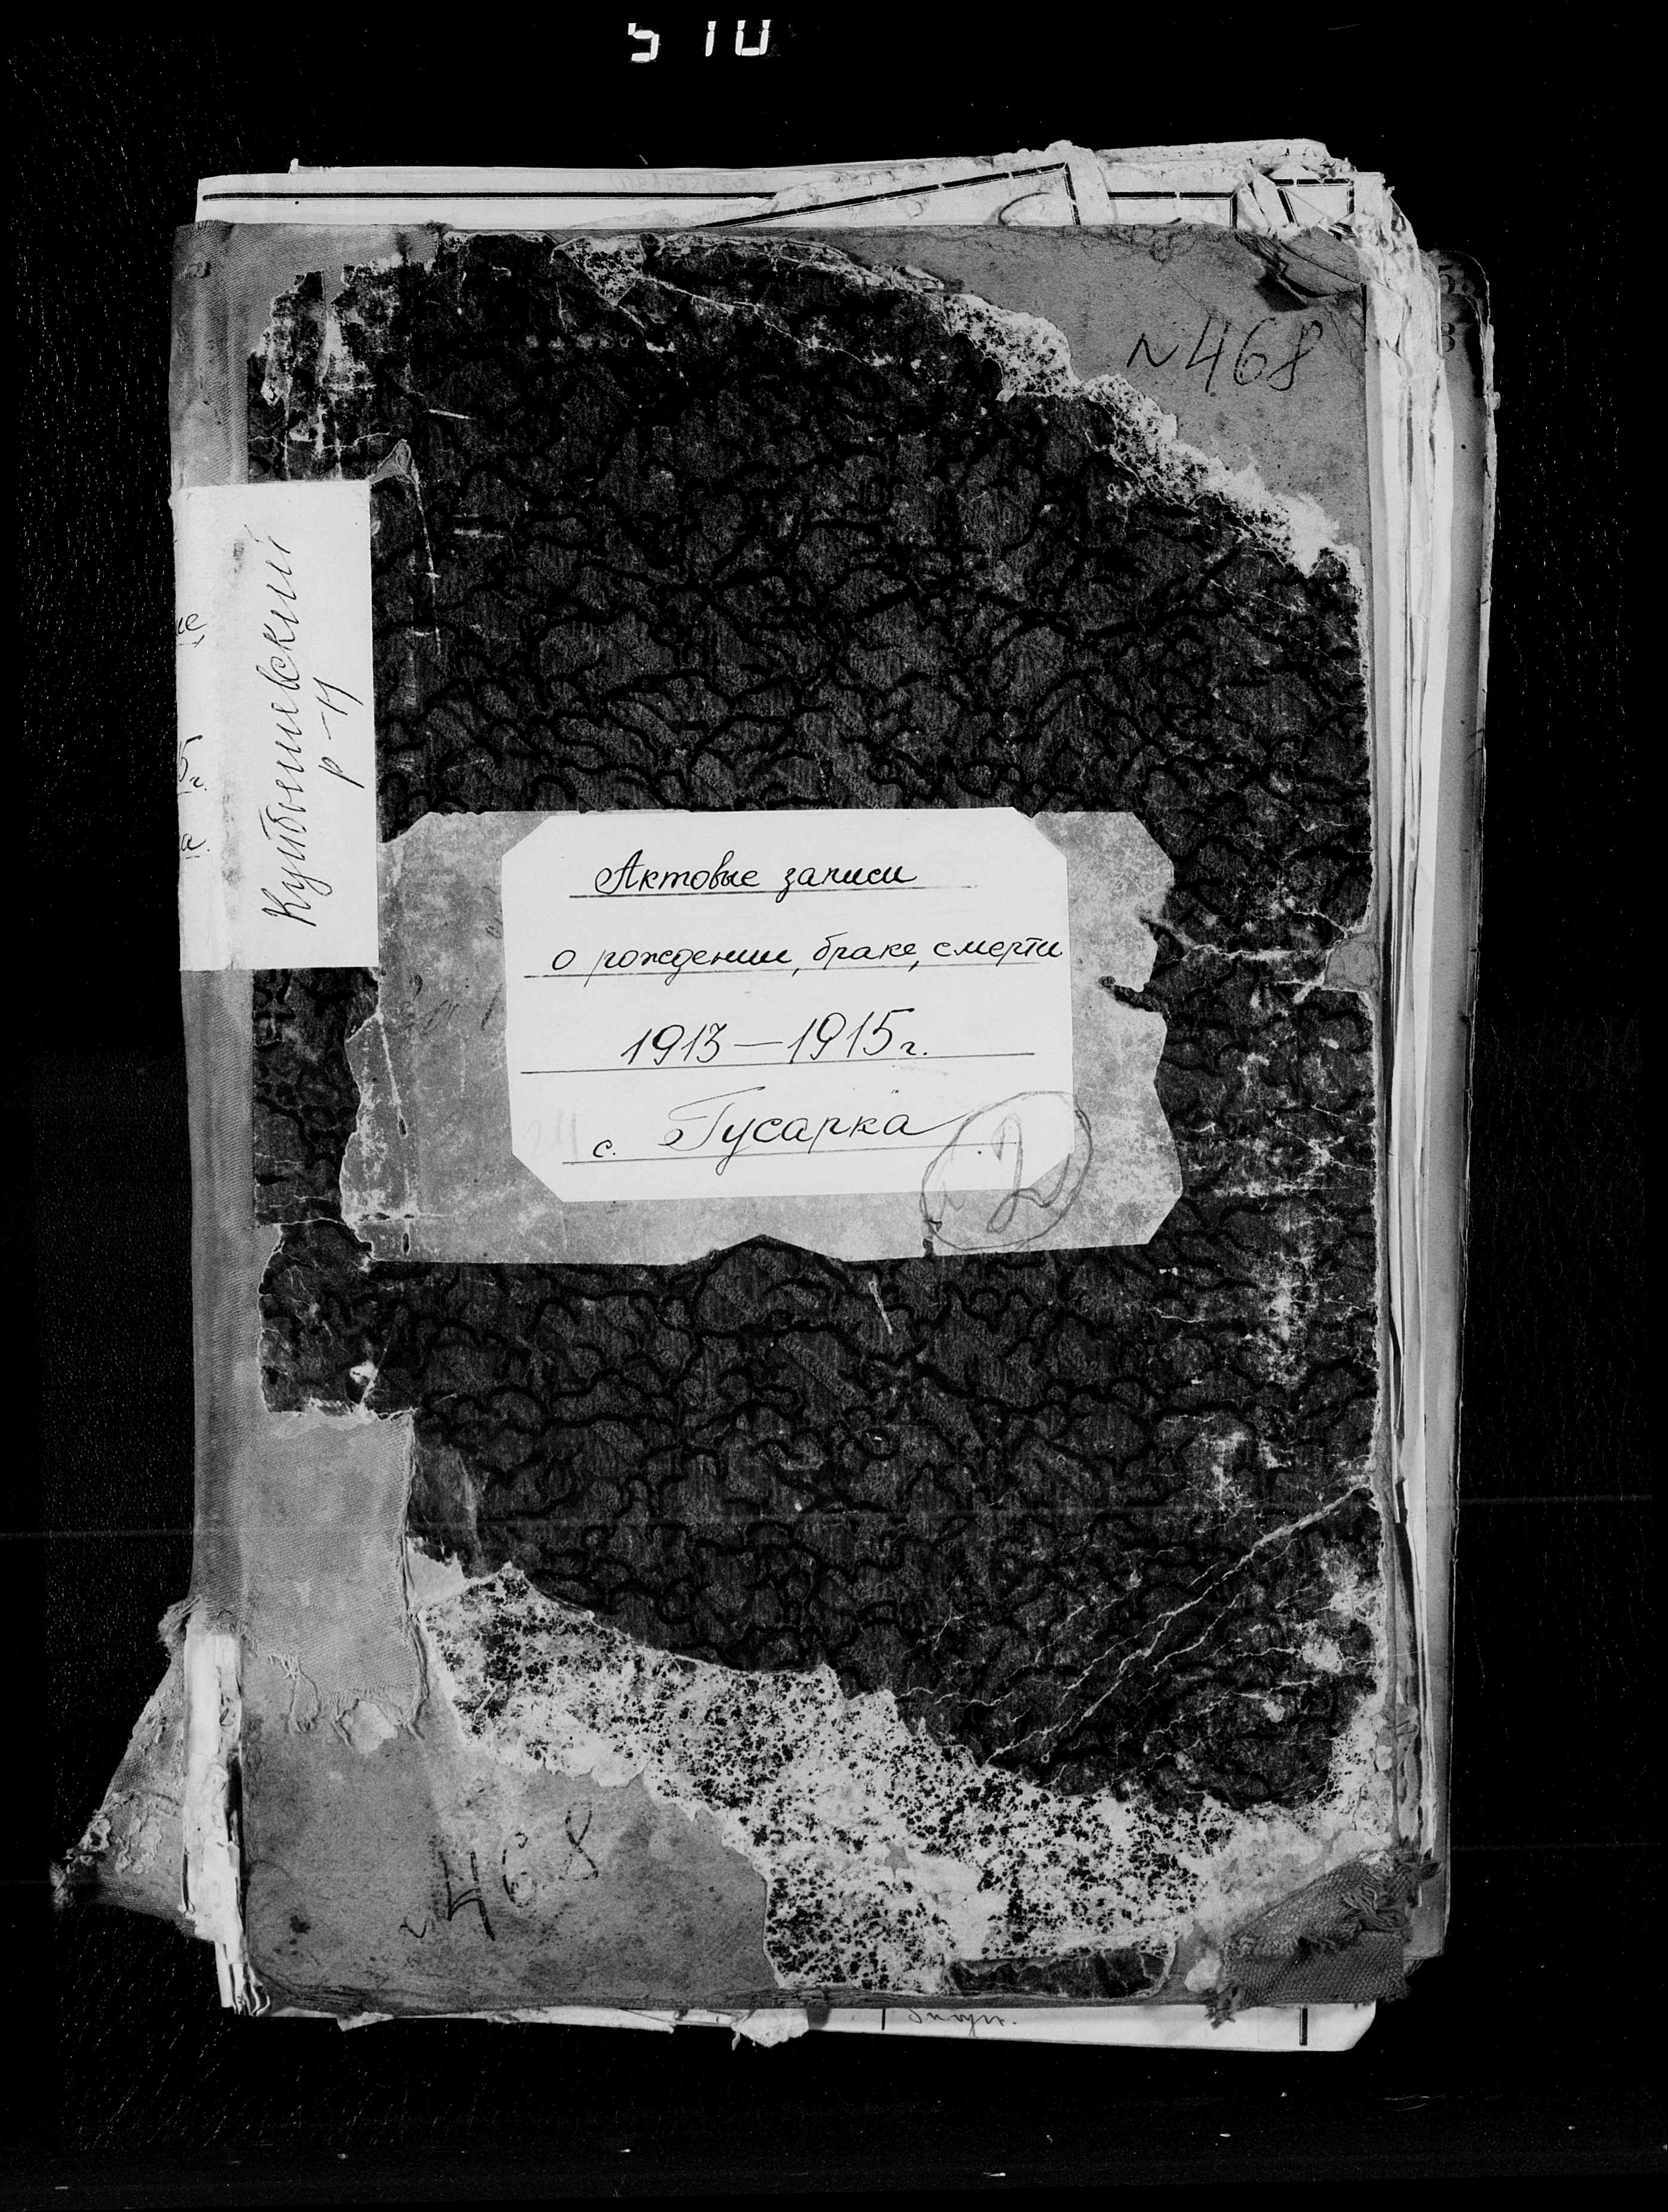 510
№468
Куйбышевский
р-н
Актовые записи
о рождении, браке, смерти
1913–1915г.
с. Гусарка
2
468